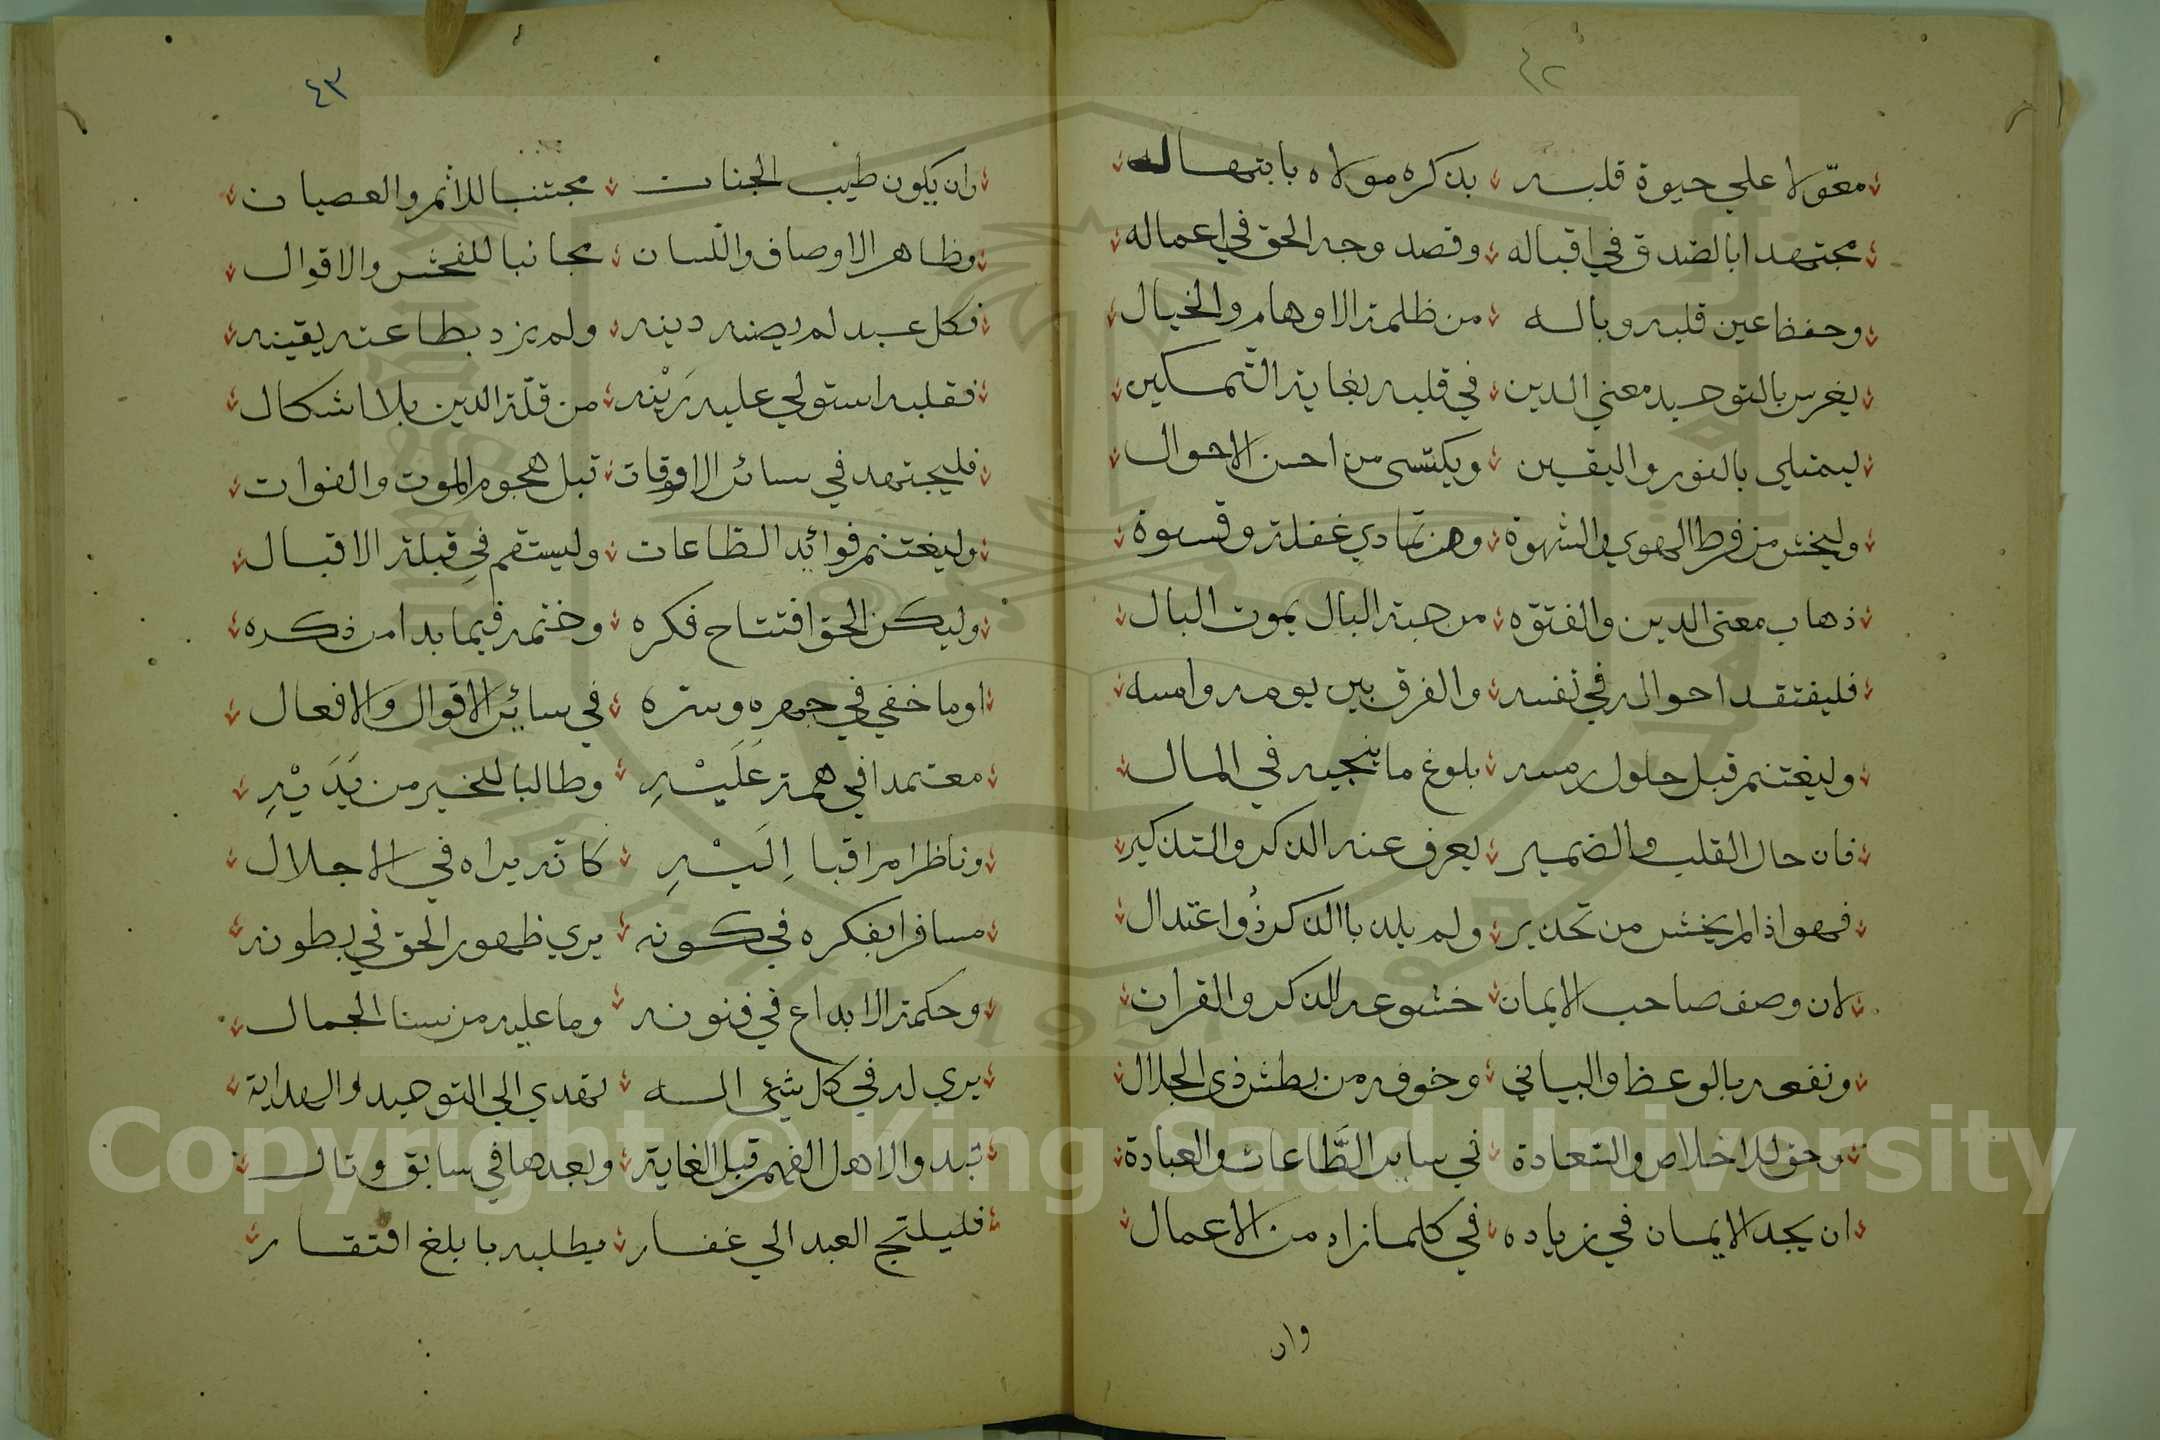 ٤٢
معوّلا علي حيوة قلبه بذكره مولاه بابتهاله
مجتهدا بالصّدق في اقباله وقصد وجه الحق في اعماله
وحفظ عين قلبه وباله من ظلمة الاوهام والخيال
يغرس بالتوحيد معني الدين في قلبه بغاية التّمكين
ليمتلي بالنور واليقين ويكتسي من احسن الاحوال
وليخش من فرط الهوي والشهوة ومن تمادي غفلة وقسوة
ذهاب معنى الدين والفتوّه من هبة البال بموت البال
فليفتقد احواله في نفسه والفرق بين يومه وامسه
وليغتنم قبل حلول رمسه بلوغ ما ينجيه في المال
فان حال القلب والضمير يعرف عند الذكر والتذكير
فهو اذا لم يخش من تحذير ولم يلذ باالذكر ذُو اعتدال
لان وصف صاحب الايمان خشوعه للذكر والقران
ونفعه بالوعظ والبياني وخوفه من بطش ذي الجلال
وحق للاخلاص والسّعادة في سايد الطَّاعات والعبادة
ان يجد الايمان في زياده في كلما زاد من الاعمال
وان
٤٣
وان يكون طيب الجنات مجتنبا للاثم والعصيان
وظاهر الاوصاف واللّسان مجانبا للفحش والاقوال
فكل عبد لم يصنه دينه ولم يزد بطاعته يقينه
فقلبه استولي عليه رَيْنه من قلّة الدين بلا اشكال
فليجتهد في سائر الاوقات قبل هجوم الموت والفوات
وليغتنم فوائد الطّاعات وليستقم في قبلة الاقبال
وليكن الحق افتتاح فكره وختمه فيما بدا من ذكره
او ما خفي في جهره وسرّه في سائر الاقوال والافعال
معتمدا في همة عَلَيْهِ وطالبا للخير من يَدَيْهِ
وناظرا مراقبا اِلَيْهِ كانّه يراه في الاجلال
مسافرا بفكره في كونه يري ظهور الحق في بطونه
وحكمة الابداع في فنونه وما عليه من سنا الجمال
يري له في كل شيئ اله تهدي الي التوحيد والهداية
تبدوا لاهل الفهم قبل الغاية وبعدها في سابق وتال
فليلتج العبد الي غفار يطلبه بابلغ افتقار
Copyright © King Saud University